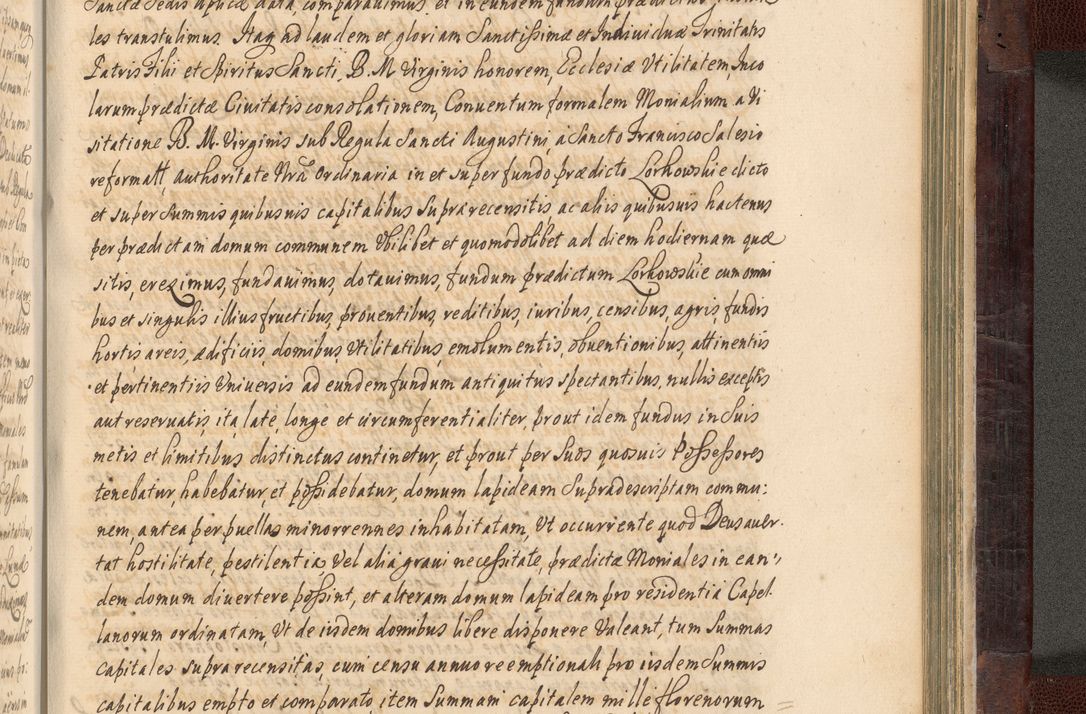 Sanctæ Sedis Aplicæ data, comparauimus, et in eundem fundum prædictum
les transtulimus. Itaq ad laudem et gloriam Sanctissimæ et Indiuiduæ Trinitatis
Patris Filii et Spiritus Sancti, B. M. Virginis honorem, Ecclesiæ Vtilitatem, Inco
larum prædictæ Ciuitatis consolationem, Conuentum formalem Monialium a Vi
sitatione B. M. Virginis sub Regula Sancti Augustini, a Sancto Francisco Salesio
reformatt, authoritate Nrã Ordinaria in et super fundo prædicto Lorkowskie dicto
et super Summis quibusuis capitalibus supra recensitis ac aliis quibusuis hactenus
per prædictam domum communem Vbilibet et quomodolibet ad diem hodiernam quæ
sitis, ereximus, fundauimus, dotauimus, fundum prædictum Lorkowskie cum omni
bus et singulis illius fructibus, prouentibus, reditibus, iuribus, censibus, agris, fundis
hortis areis, ædificiis, domibus, Vtilitatibus, emolumentis, obuentionibus, attinentiis
et pertinentiis Vniuersis ad eundem fundum antiquitus spectantibus, nullis exceptis
aut reseruatis, ita late, longe et circumferentialiter, prout idem fundus in Suis
metis et limitibus distinctus continetur, et prout per Suos quosuis Possessores
tenebatur, habebatur, et possidebatur, domum lapideam Supradescriptam commu:
nem, antea per puellas minorrennes inhabitatam, Vt occurrente quod Deus auer.
tat hostilitate, pestilentia, Vel alia graui necessitate, prædictæ Moniales in ean:,
dem domum diuertere possint, et alteram domum lapideam pro residentia Capel.
lanorum ordinatam, Vt de iisdem domibus libere disponere Valeant, tum Summas
capitales supra recensitas, cum censu annuo reemptionali pro iisdem Summis
capitalibus empto et comparato, item Summam capitalem mille florenorum